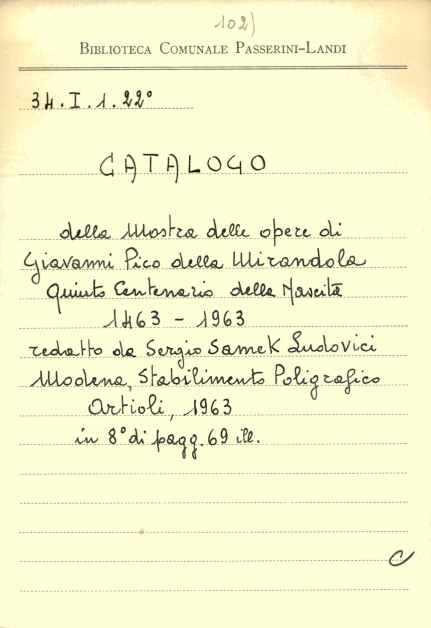 102)
BIBLIOTECA COMUNALE PASSERINI-LANDI
34.I.1.22°
CATALOGO
della Mostra delle opere di
Giavanni Pico della Mirandola
Quinto Centenario della Nascita
1463 - 1963
redatto da Sergio Samek Ludovici
Modena, Stabilimento Poligrafico
Artioli, 1963
in 8° di pagg. 69 ill.
C